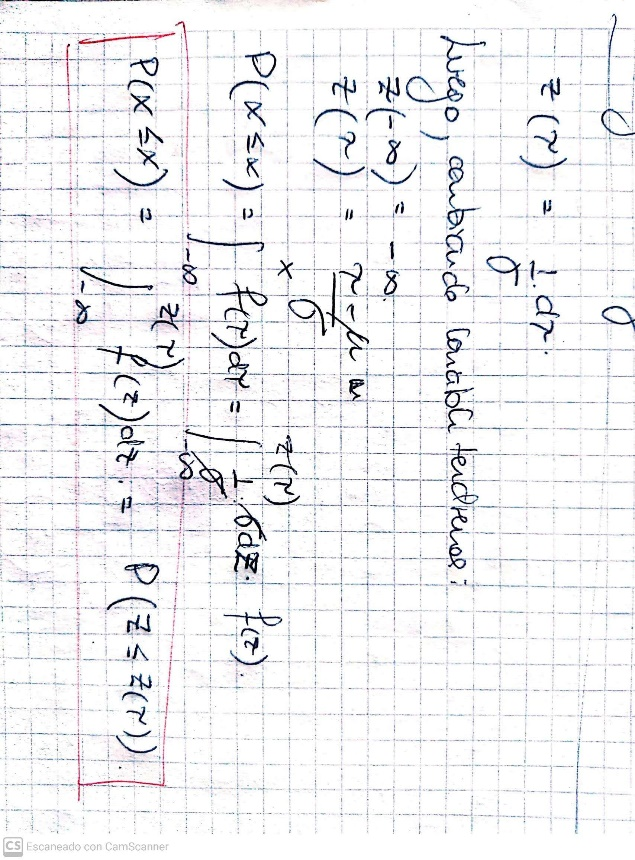 z(r) = 1/σ dr.
Luego, cambiando variable tendremos:
z(-∞) = -∞.
z(r) = r-μ/σ
P(X≤x) = ∫_{-∞}^{x} f(r)dr = ∫_{-∞}^{z(r)} 1/σ · σdz · f(z).
P(X≤x) = ∫_{-∞}^{z(r)} f(z)dz = P(Z≤z(r)).
CS Escaneado con CamScanner